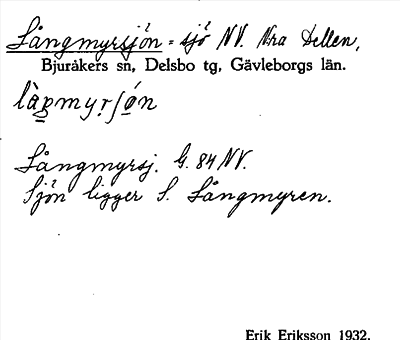 Långmyrsjön = sjö NV. Nra Dellen,
Bjuråkers sn, Delsbo tg, Gävleborgs län.
Långmyrsj. G. 84 NV.
Sjön ligger S. Långmyren.
Erik Eriksson 1932.